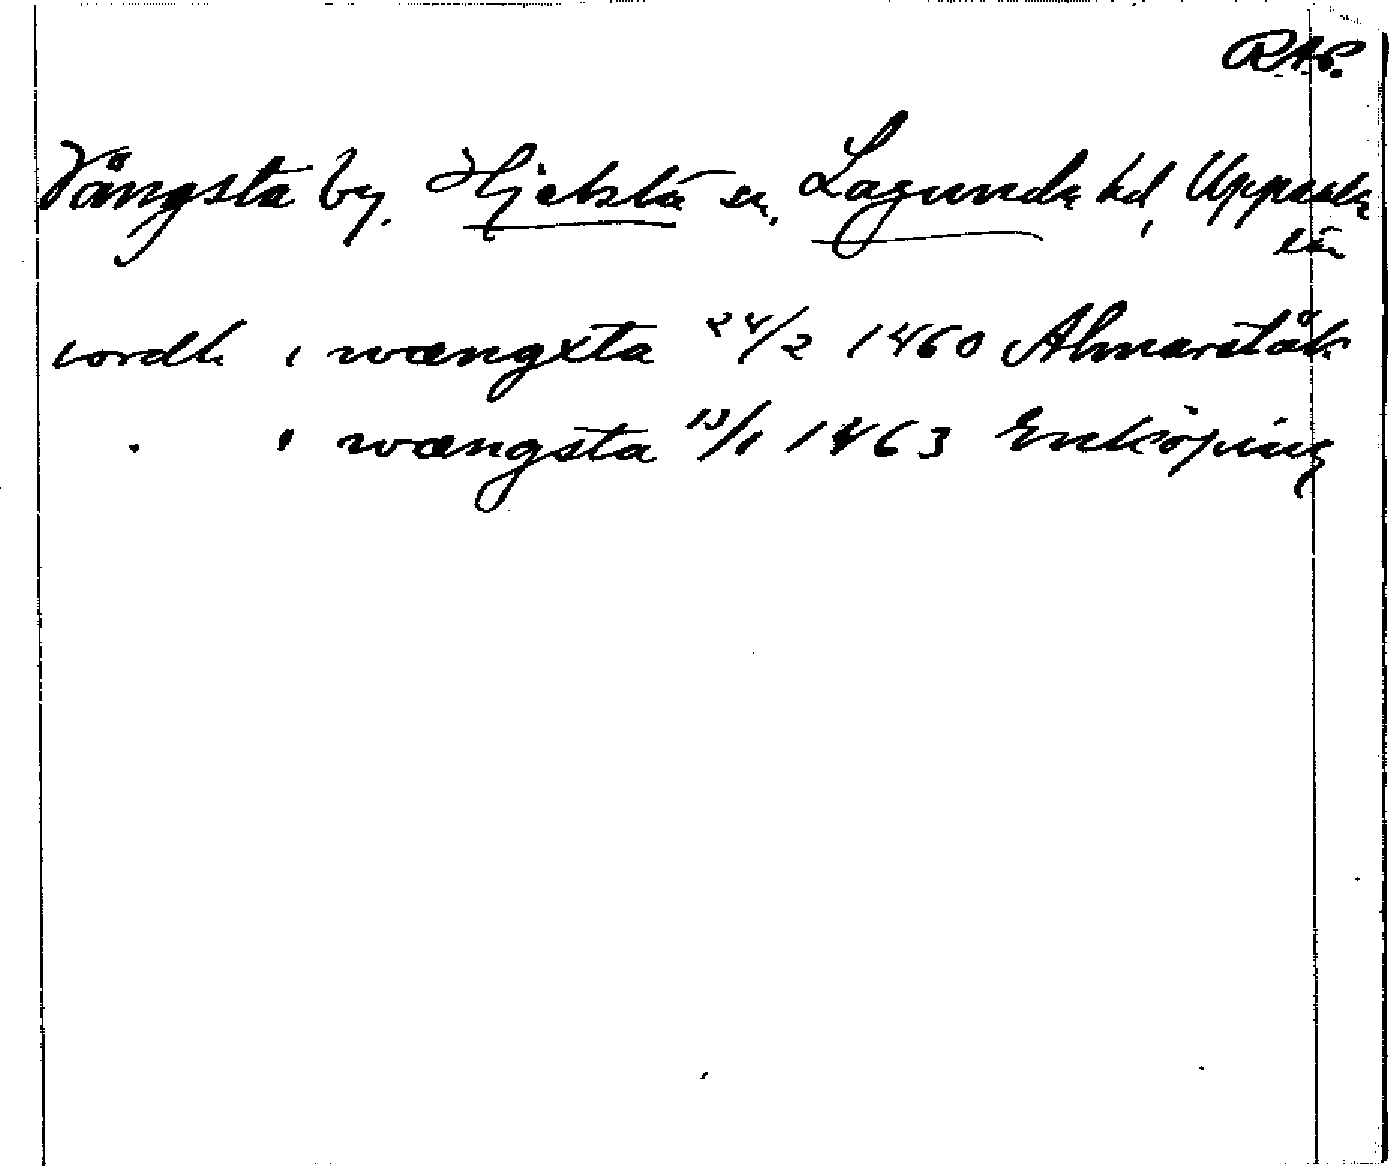 RAP.
Vångsta by. Hjelsta sn, Lagunda hd, Uppsala
län
iordh i wængxta 24/2 1460 Almarstäk
" i wængsta 13/1 1463 Enköping